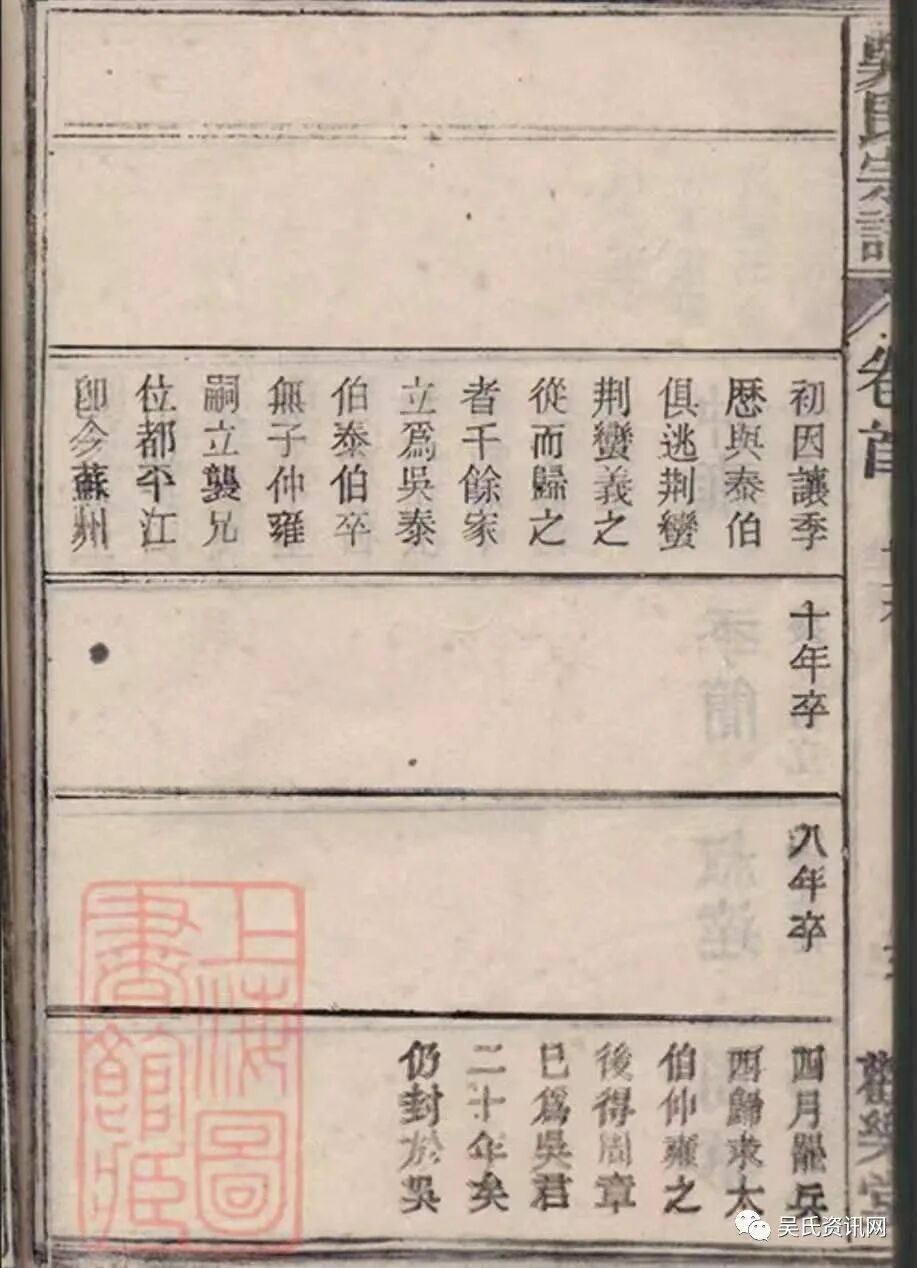 吳氏宗譜
卷首
初因讓季
歷與泰伯
俱逃荆蠻
荆蠻義之
從而歸之
者千餘家
立爲吳泰
伯泰伯卒
無子仲雍
嗣立襲兄
位都平江
卽今蘇州
十年卒
八年卒
四月罷兵
西歸求太
伯仲雍之
後得周章
已爲吳君
二十年矣
仍封於吳
上海圖
書館藏
吴氏资讯网